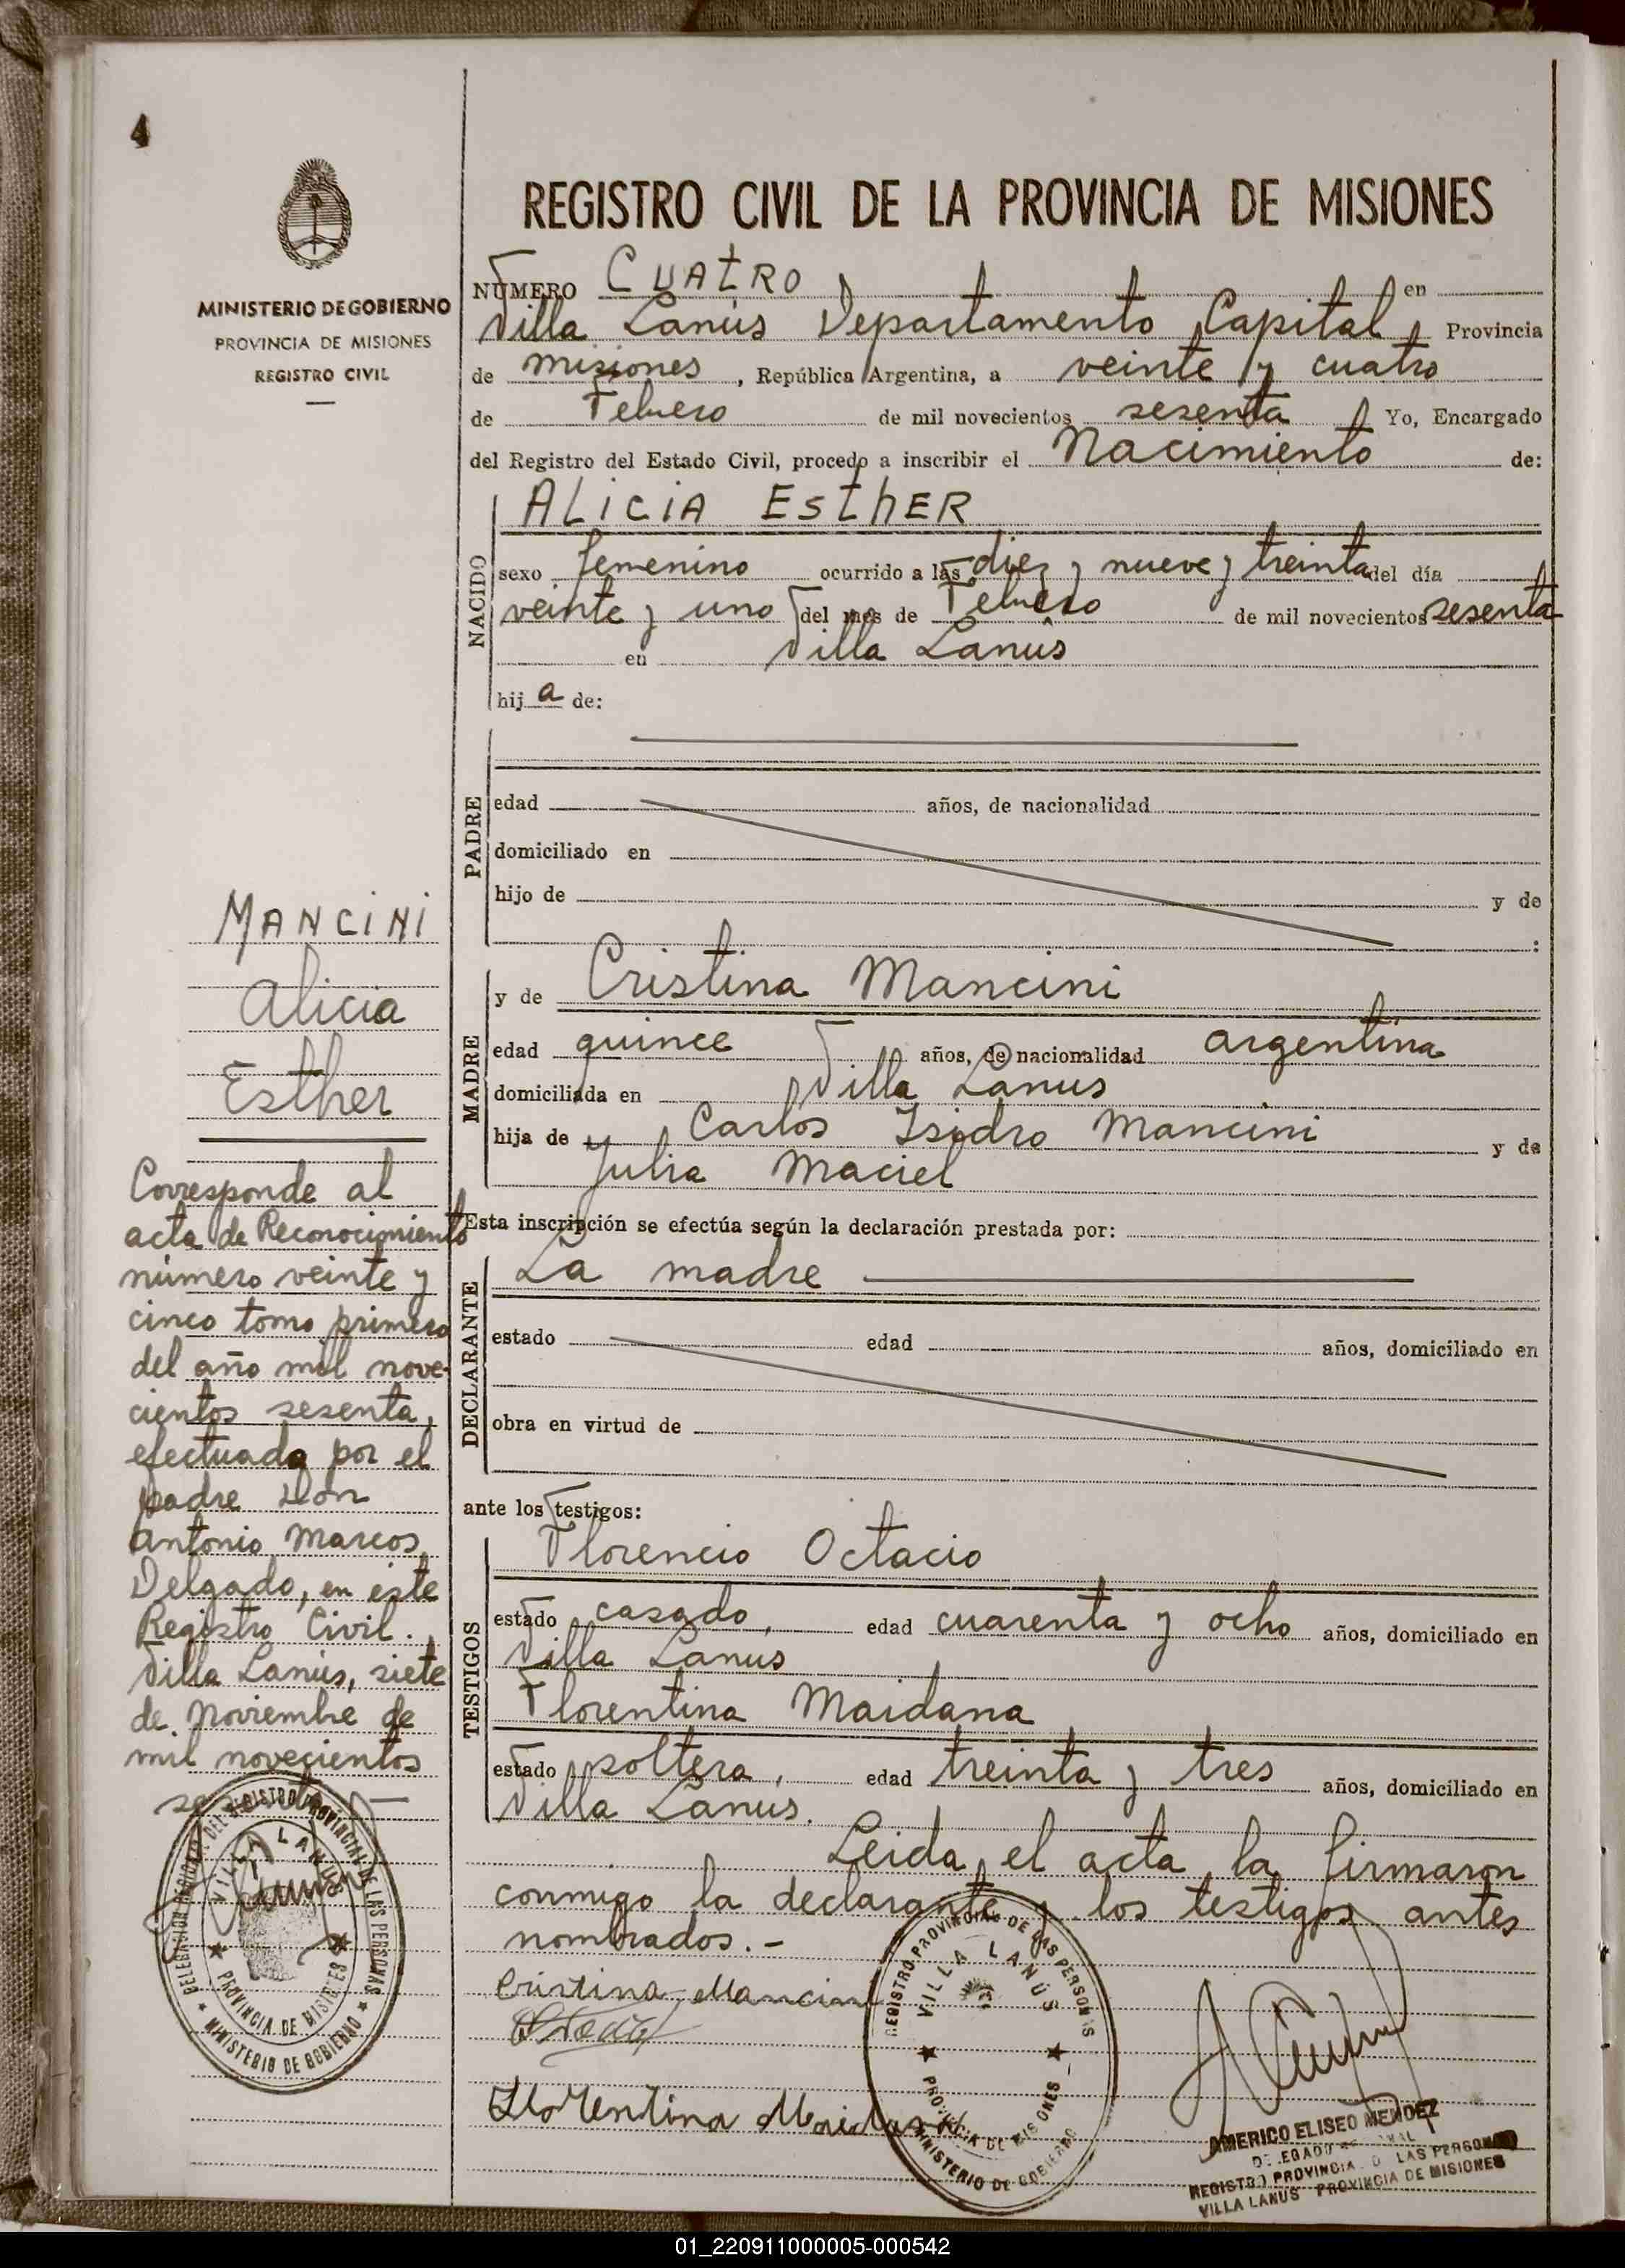 4
MINISTERIO DE GOBIERNO
PROVINCIA DE MISIONES
REGISTRO CIVIL
MANCINI
Alicia
Esther
Corresponde al
acta de Reconocimiento
número veinte y
cinco tomo primero
del año mil nove-
cientos sesenta,
efectuada por el
padre Don
Antonio Marcos
Delgado, en éste
Registro Civil.
Villa Lanús, siete
de Noviembre de
mil novecientos
sesenta
DELEGACION REGIONAL DEL REGISTRO PROVINCIAL DE LAS PERSONAS
VILLA LANUS
PROVINCIA DE MISIONES
MINISTERIO DE GOBIERNO
REGISTRO CIVIL DE LA PROVINCIA DE MISIONES
NÚMERO CUATRO en
Villa Lanús Departamento Capital, Provincia
de Misiones, República Argentina, a veinte y cuatro
de Febrero de mil novecientos sesenta Yo, Encargado
del Registro del Estado Civil, procedo a inscribir el Nacimiento de:
NACIDO
ALICIA ESTHER
sexo femenino ocurrido a las diez y nueve y treinta del día
veinte y uno del mes de Febrero de mil novecientos sesenta
en Villa Lanús
hij a de:
PADRE
edad años, de nacionalidad
domiciliado en
hijo de y de
:
MADRE
y de Cristina Mancini
edad quince años, de nacionalidad argentina
domiciliada en Villa Lanus
hija de Carlos Isidro Mancini y de
Julia Maciel
Esta inscripción se efectúa según la declaración prestada por:
DECLARANTE
La madre
estado edad años, domiciliado en
obra en virtud de
ante los testigos:
TESTIGOS
Florencio Octacio
estado casado, edad cuarenta y ocho años, domiciliado en
Villa Lanus
Florentina Maidana
estado soltera, edad treinta y tres años, domiciliado en
Villa Lanus.
Leida el acta, la firmaron
conmigo la declarante y los testigos antes
nombrados.-
Cristina Mancini
Florentina Maidana
REGISTRO PROVINCIAL DE LAS PERSONAS
VILLA LANÚS
PROVINCIA DE MISIONES
MINISTERIO DE GOBIERNO
AMERICO ELISEO MENDEZ
REGISTRO PROVINCIA D LAS PERSONAS
VILLA LANUS PROVINCIA DE MISIONES
01_220911000005-000542